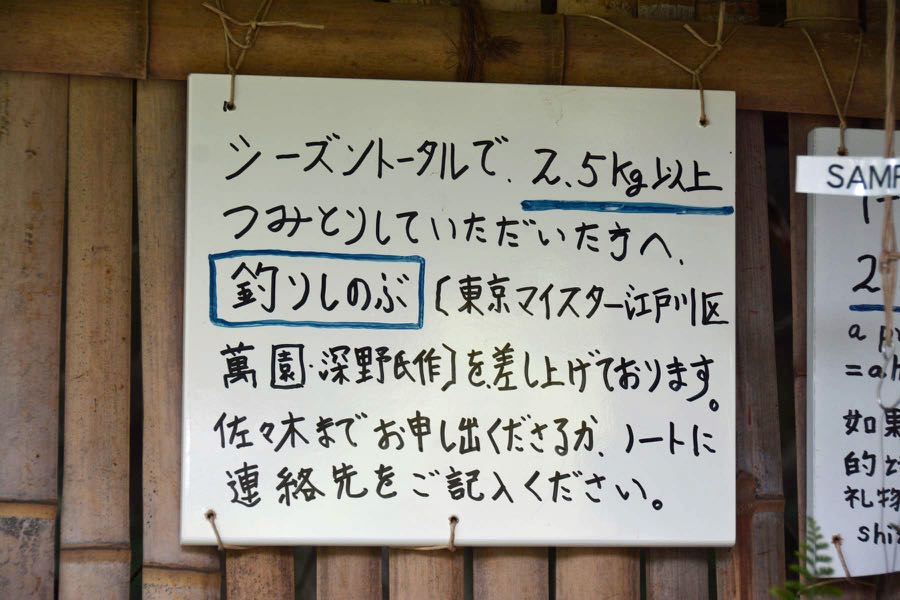 シーズントータルで、2.5kg以上
つみとりしていただいた方へ、
釣りしのぶ〔東京マイスター江戸川区
萬園・深野氏作〕を差し上げております。
佐々木までお申し出くださるか、ノートに
連絡先をご記入ください。
SAMP
2
a p
=a h
如果
的
礼物
shi